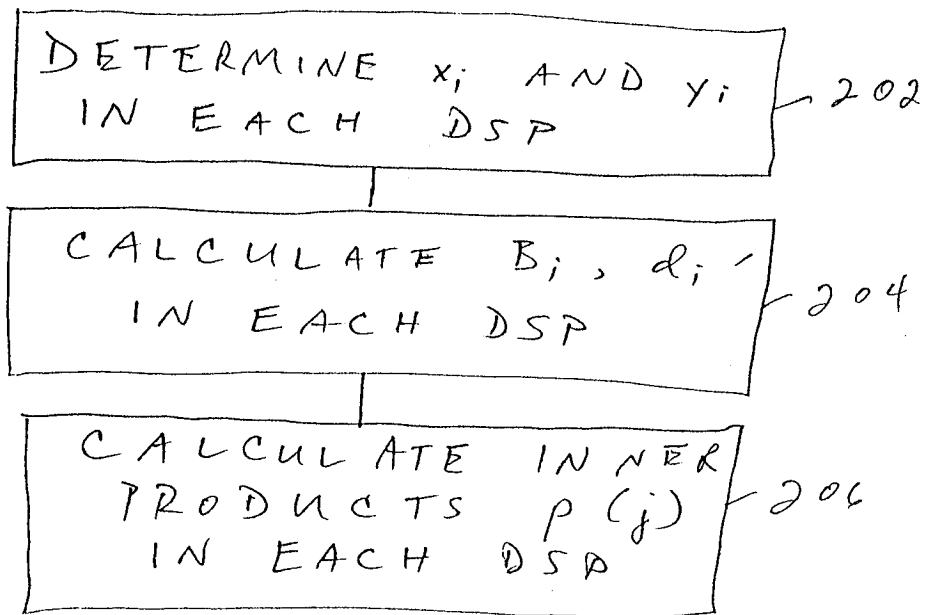 DETERMINE xᵢ AND yᵢ
IN EACH DSP
202
CALCULATE Bᵢ, dᵢ′
IN EACH DSP
204
CALCULATE INNER
PRODUCTS p(j)
IN EACH DSP
206